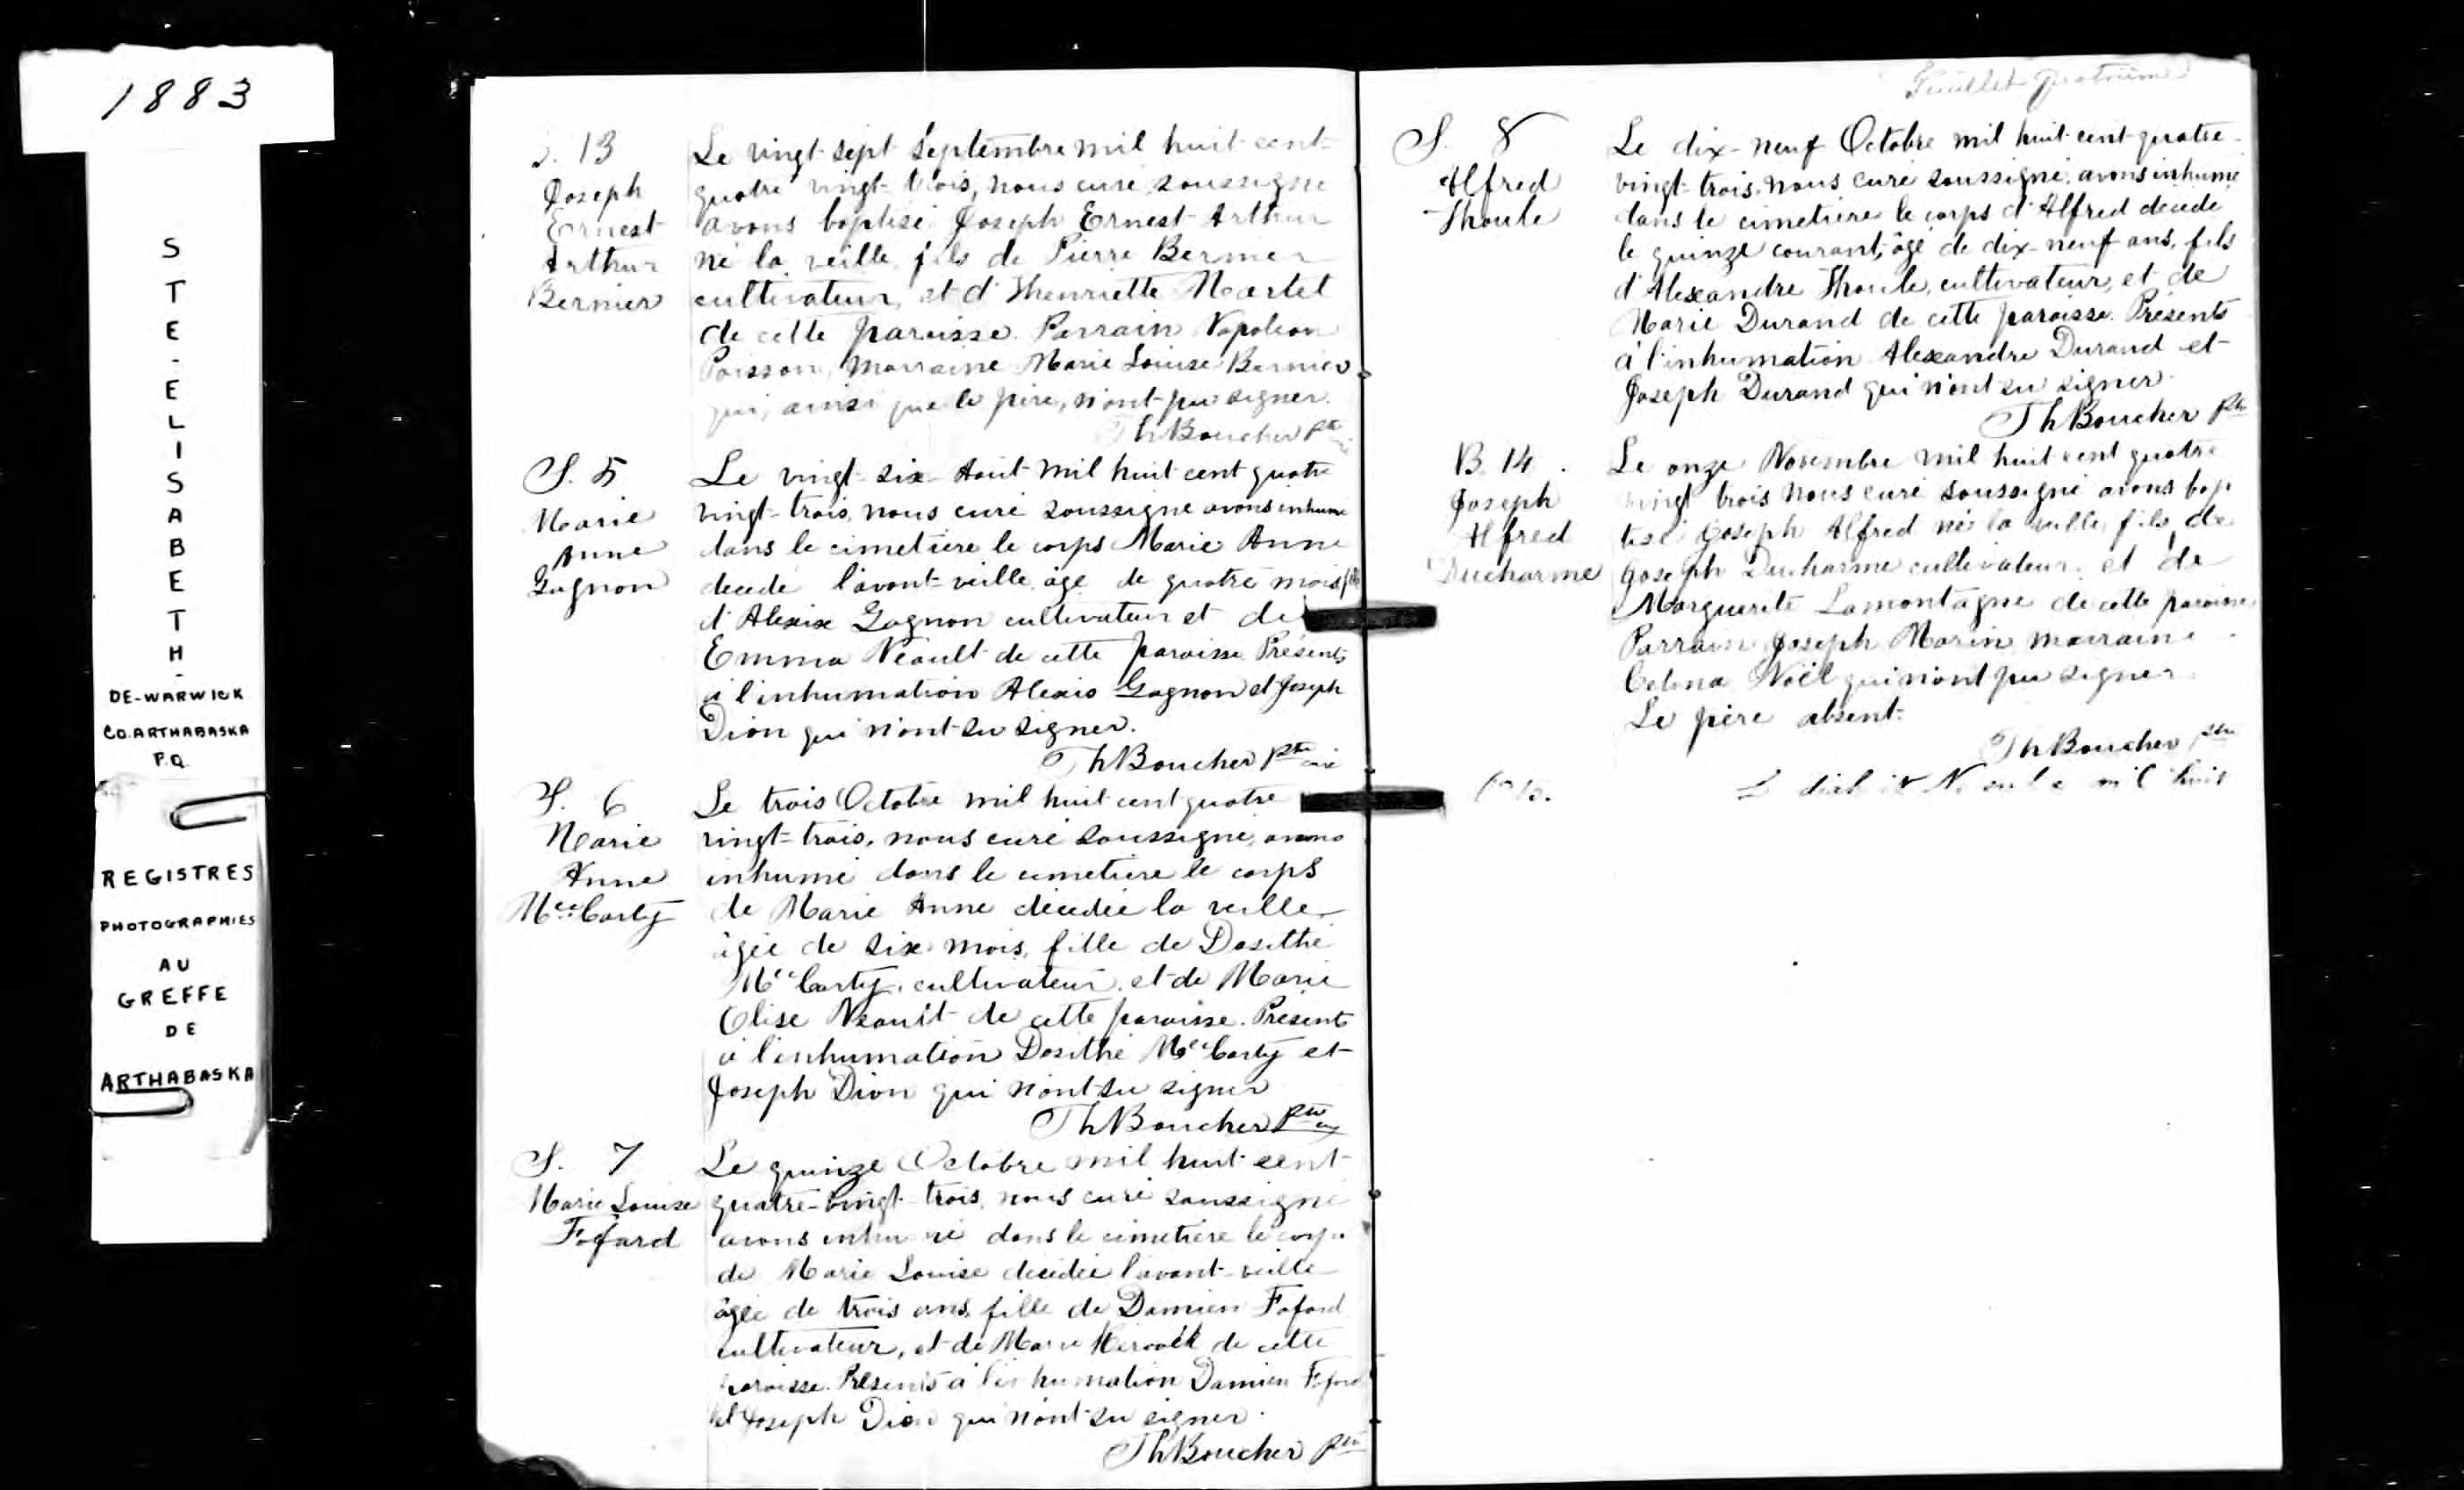 1883
STE-ELISABETH-
DE-WARWICK
CO. ARTHABASKA
P.Q.
REGISTRES
PHOTOGRAPHIES
AU
GREFFE
DE
ARTHABASKA
13
Joseph
Ernest
Arthur
Bernier
Le vingt-sept Septembre mil huit-cent-
quatre vingt-trois, nous curé soussigné
avons baptisé Joseph Ernest Arthur
né la veille fils de Pierre Bernier
cultivateur, et d'Henriette Martel
de cette paroisse. Parrain Napoleon
Poisson, marraine Marie Louise Bernier
qui, ainsi que le père, n'ont pu signer.
Th Boucher Ptre
S. 5
Marie
Anne
Gagnon
Le vingt-six Aout mil huit cent quatre
vingt-trois, nous curé soussigné avons inhumé
dans le cimetière le corps Marie Anne
décédé l'avant-veille âgé de quatre mois
d'Alexix Gagnon cultivateur et de
Emma Néault de cette paroisse Présents
à l'inhumation Alexis Gagnon et Joseph
Dion qui n'ont su signer.
Th Boucher Ptre
S. 6
Marie
Anne
McCarty
Le trois Octobre mil huit cent quatre
vingt-trois, nous curé soussigné, avons
inhumé dans le cimetière le corps
de Marie Anne décédée la veille
âgée de six mois, fille de Dosithé
McCarty, cultivateur, et de Marie
Olise Néault de cette paroisse. Présents
à l'inhumation Dosithé McCarty et
Joseph Dion qui n'ont su signer
Th Boucher Ptre
S. 7
Marie Louise
Fafard
Le quinze Octobre mil huit cent
quatre-vingt-trois, nous curé soussigné
avons inhumé dans le cimetière le corps
de Marie Louise décédée l'avant-veille
âgée de trois ans, fille de Damien Fafard
cultivateur, et de Marie de cette
paroisse. Présents à l'inhumation Damien Fafard
et Joseph Dion qui n'ont su signer.
Th Boucher Ptre
Feuillet quatrième
S. 8
Alfred
Houle
Le dix-neuf Octobre mil huit cent quatre-
vingt-trois, nous curé soussigné, avons inhumé
dans le cimetière le corps d'Alfred décédé
le quinze courant, âgé de dix-neuf ans, fils
d'Alexandre Houle, cultivateur, et de
Marie Durand de cette paroisse. Présents
à l'inhumation Alexandre Durand et
Joseph Durand qui n'ont su signer.
Th Boucher Ptre
B. 14.
Joseph
Alfred
Ducharme
Le onze Novembre mil huit cent quatre
vingt trois nous curé soussigné avons bap
tisé Joseph Alfred né la veille, fils de
Joseph Ducharme cultivateur, et de
Marguerite Lamontagne de cette paroisse
Parrain Joseph Morin marraine
Celina Noël qui n'ont pu signer
Le père absent.
Th Boucher Ptre
mil huit